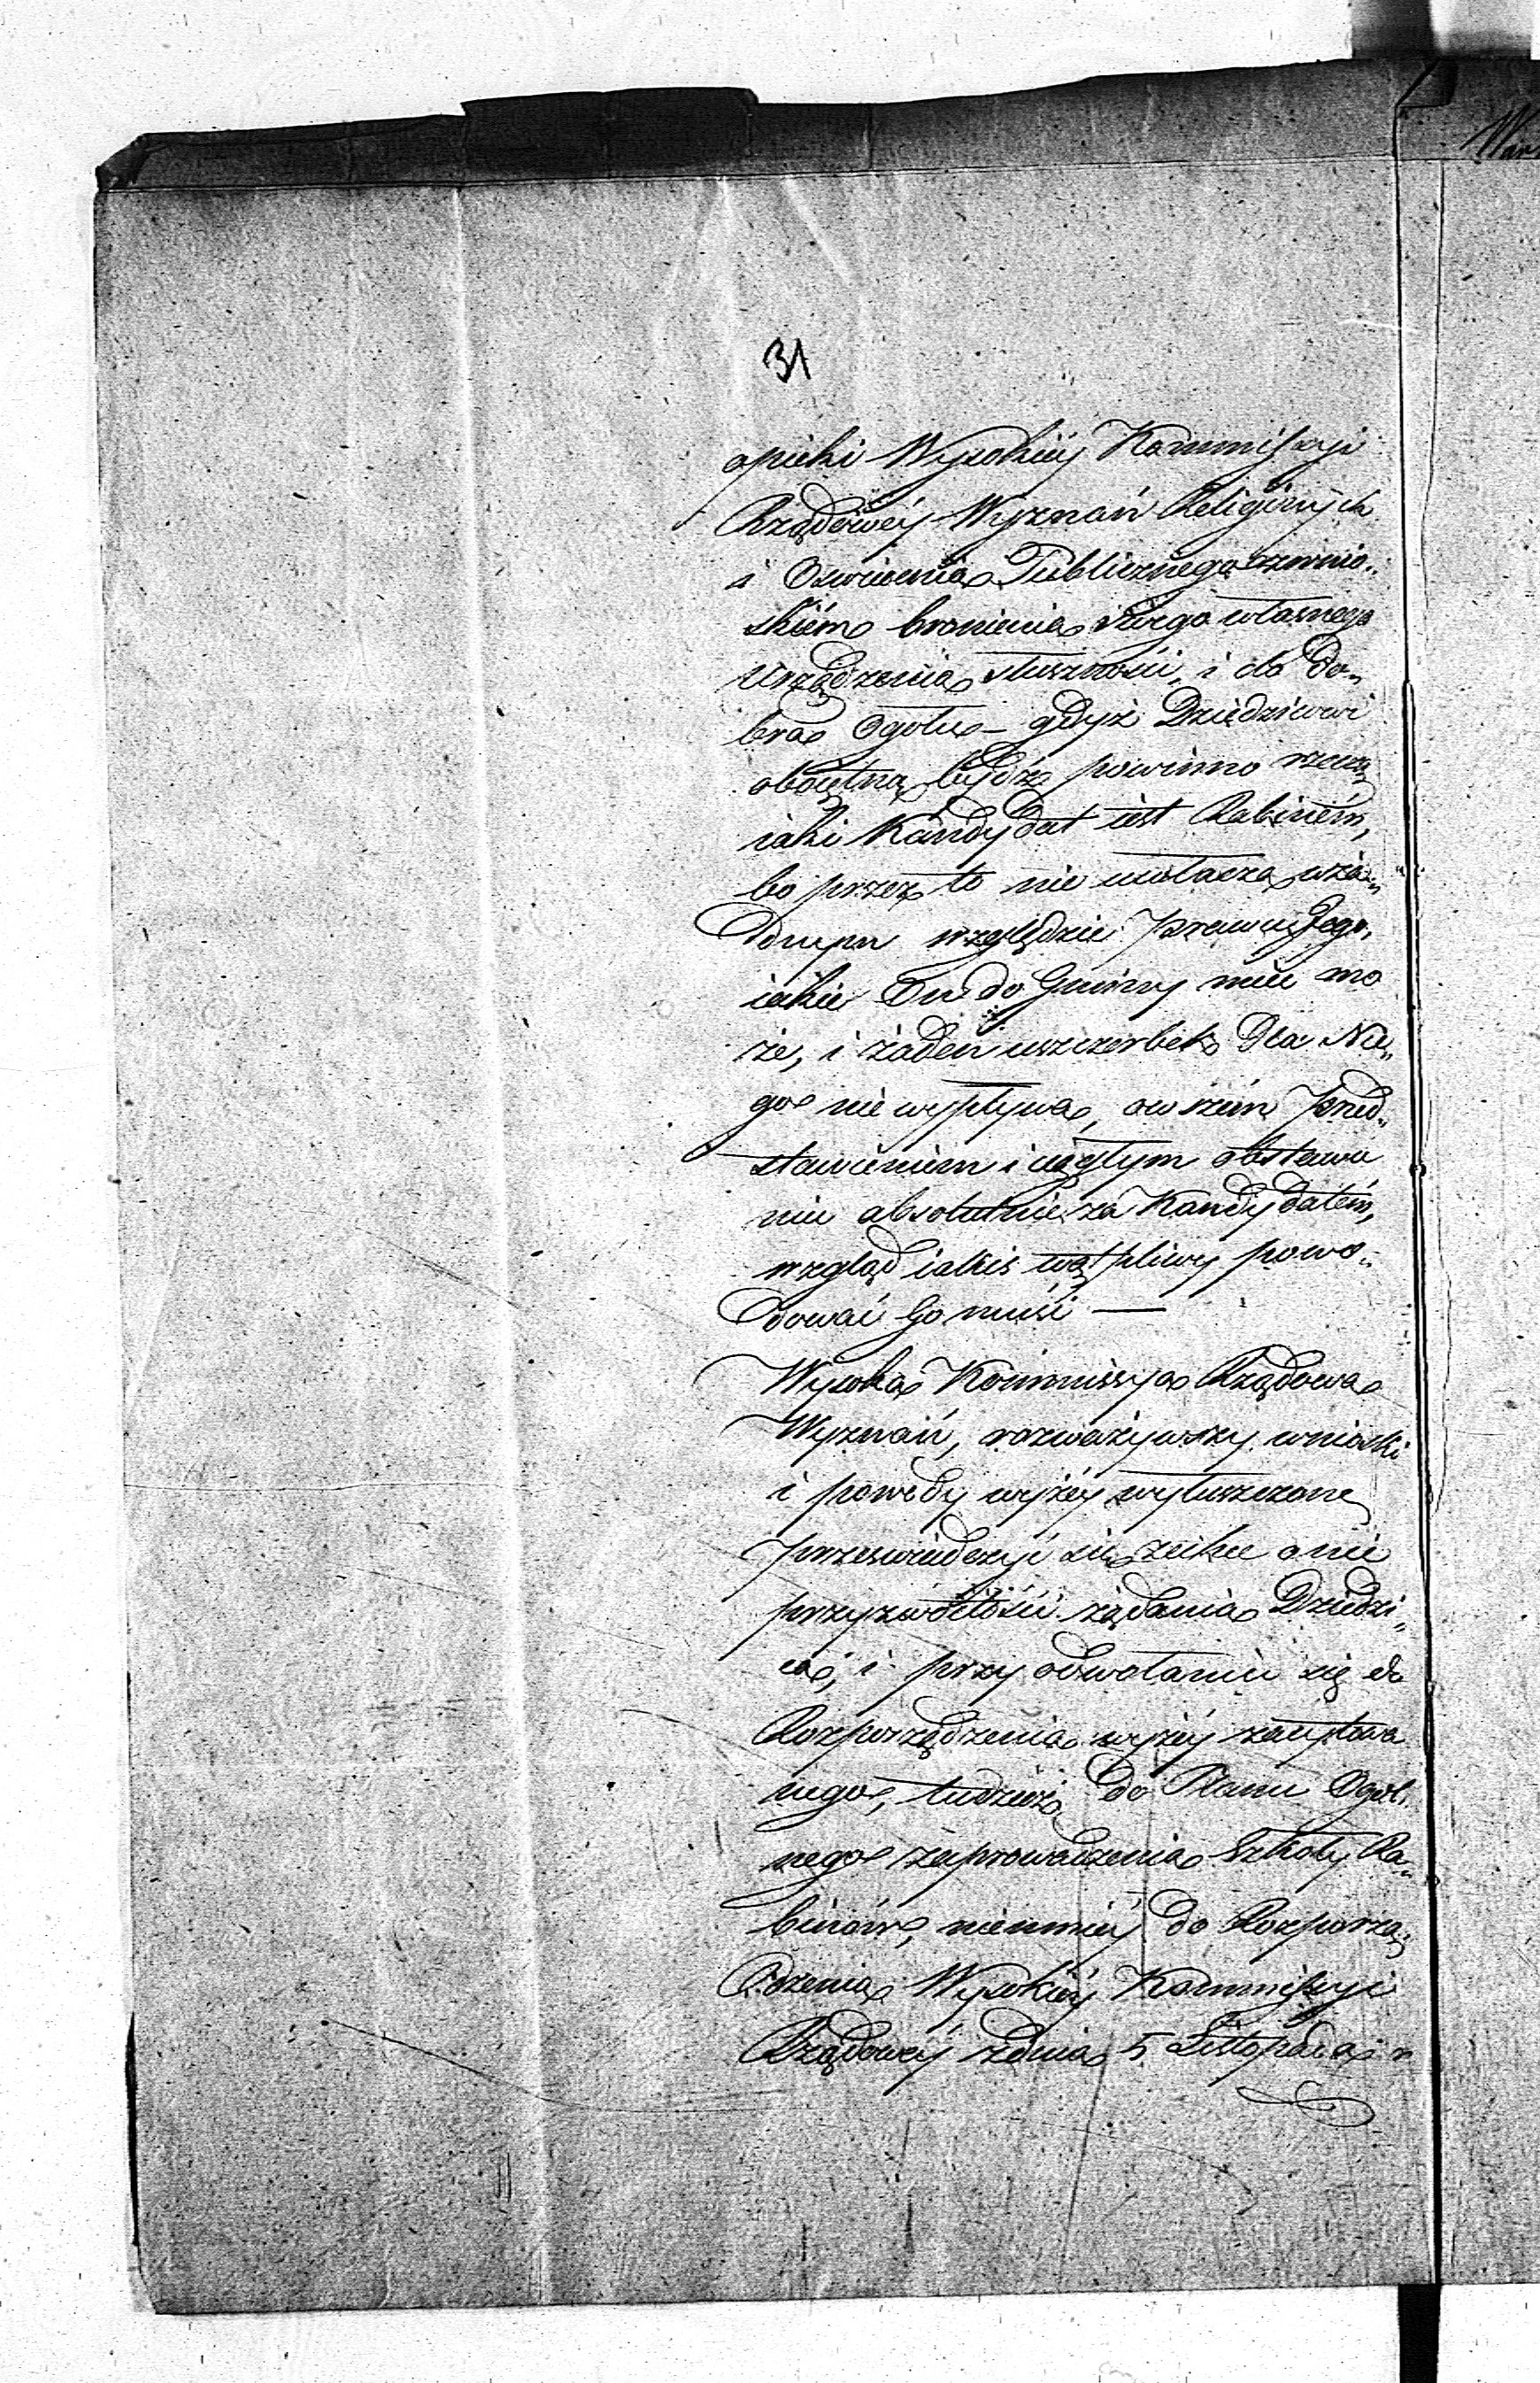 31
opieki Wysokiéy Kommissyi
Rządowéy Wyznań Religinych
i Oswiecenia Publicznego
skiém bronienia swego własnego
Urządzenia słuszności, i dla do„
bra Ogołu – gdyż Dziedzicowi
oboiętną bydź powinno rzeczą
iaki Kandydat iest Rabiném,
bo przez to nie uwłacza w ża„
dnym względzie prawu Jego,
iakie On do Gminy mieć mo
że, i żaden uszczerbek dla Nie„
go nie wypływa, owszem przed„
stawieniem i ciągłym obstawa
niu absolutnie za Kandydatém,
wzgląd iakis wątpliwy powo„
dować Go musi —
Wysoka Kommissya Rządowa
Wyznań, rozważywszy wnioski
i powody wyżéy wyłuszczone
przeswiadczyć się zechce o nie
przyzwoitości żądania Dziedzi„
ca, i przy odwołaniu się do
Rozporządzenia wyżéy zacytowa
nego, tudzież do Planu Ogól„
nego zaprowadzenia Szkoły Ra„
binów, niemniéy do Rozporzą„
dzenia Wysokiéy Kommissyi
Rządowéy z dnia 5 Listopada r
War